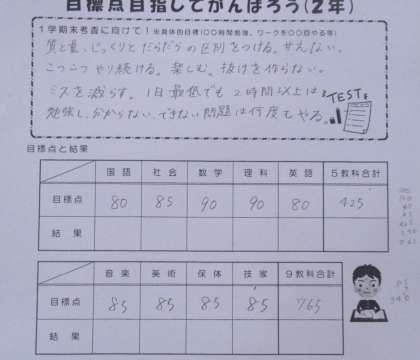 目標点目指してがんばろう(2年)
1学期末考査に向けて!
質と量、じっくりとだらだらの区別をつける。甘えない。
こつこつやり続ける。楽しむ。抜けを作らない。
ミスを減らす。1日最低でも2時間以上は
勉強し、分からない、できない問題は何度もやる。
TEST
目標点と結果
国語 社会 数学 理科 英語 5教科合計
目標点 80 85 90 90 80 425
結果
音楽 美術 保体 技家 9教科合計
目標点 85 85 85 85 765
結果